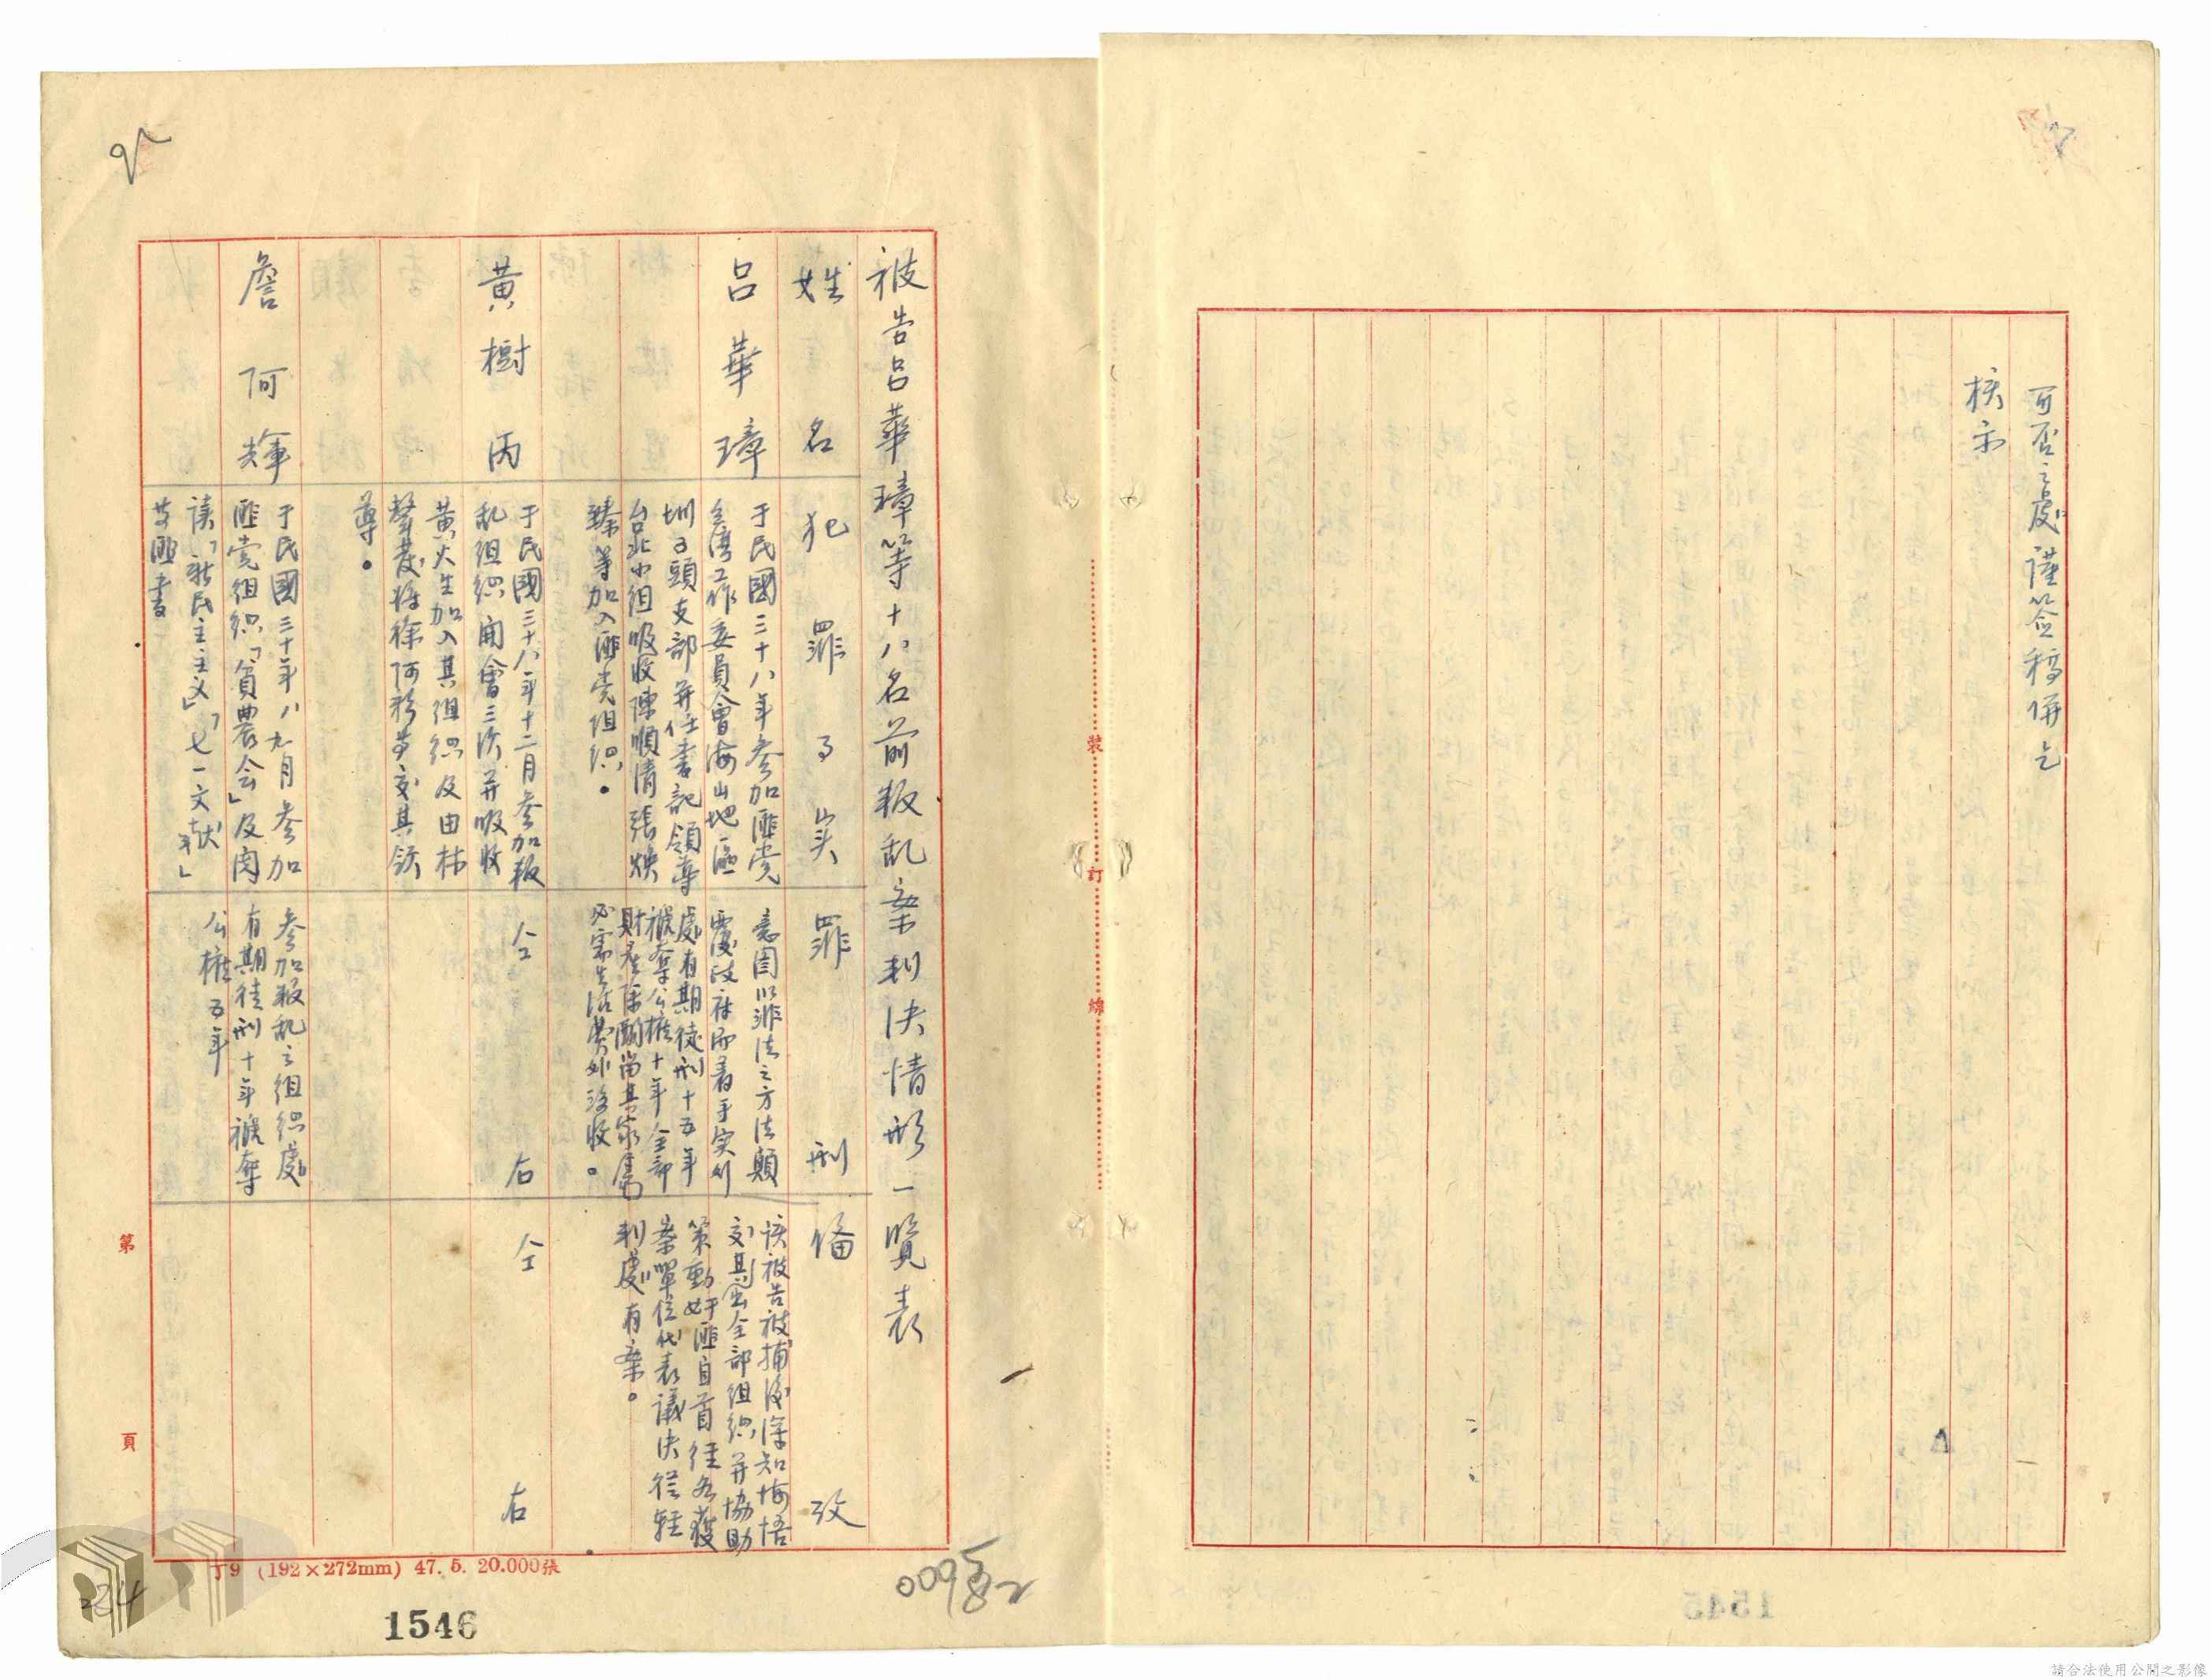 可否之處謹簽稿併乞
核示
1545
裝
訂
線
被告呂華璋等十八名前叛乱案判決情形一覽表
姓名
犯罪事实
罪刑
俻攷
呂華璋
于民國三十八年参加匪党
台湾工作委員會海山地區
圳子頭支部并任書記領導
台北小組吸收陳順清張煥
臻等加入匪党组织。
意图以非法之方法顛
覆政府而着手实行
處有期徒刑十五年
褫奪公權十年全部
財產除酌留其家屬
必需生活費外沒收。
该被告被捕後深知悔悟
交其出全部组织并協助
策動奸匪自首經各獲
案單位代表議決從輕
判處有案。
黃樹丙
于民國三十八年十二月参加叛
乱组织開會三次并吸收
黃火生加入其组织及由林
聲發将徐阿彩等交其領
導。
仝右
仝右
詹阿輝
于民國三十年八九月参加
匪党组织「貧農会」及閱
读「新民主主义」「七一文献」
等匪書
参加叛乱之组织處
有期徒刑十年褫奪
公權五年
第
頁
丁9 (192×272mm) 47. 5. 20.000張
1546
234
請合法使用公開之影像